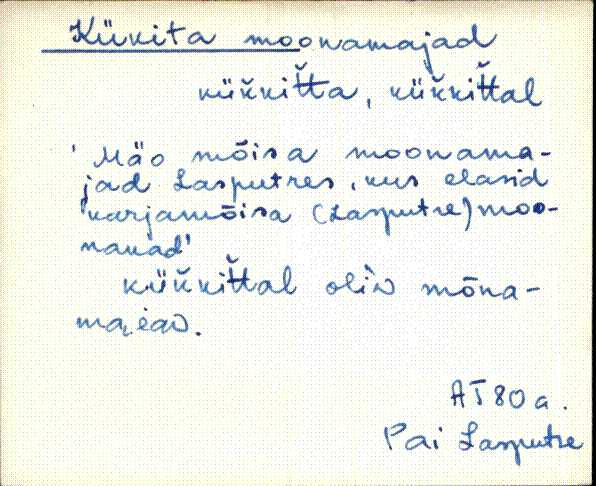 Kükita moonamajad
küǩkit̆t̆a, küǩkit̆t̆al
'Mäo mõisa moonama-
jad Lasputres, kus elasid
karjamõisa (Lasputre) moo-
nakad'
küǩkit̆t̆al oliv mōna-
AT 80 a.
Pai Lasputre